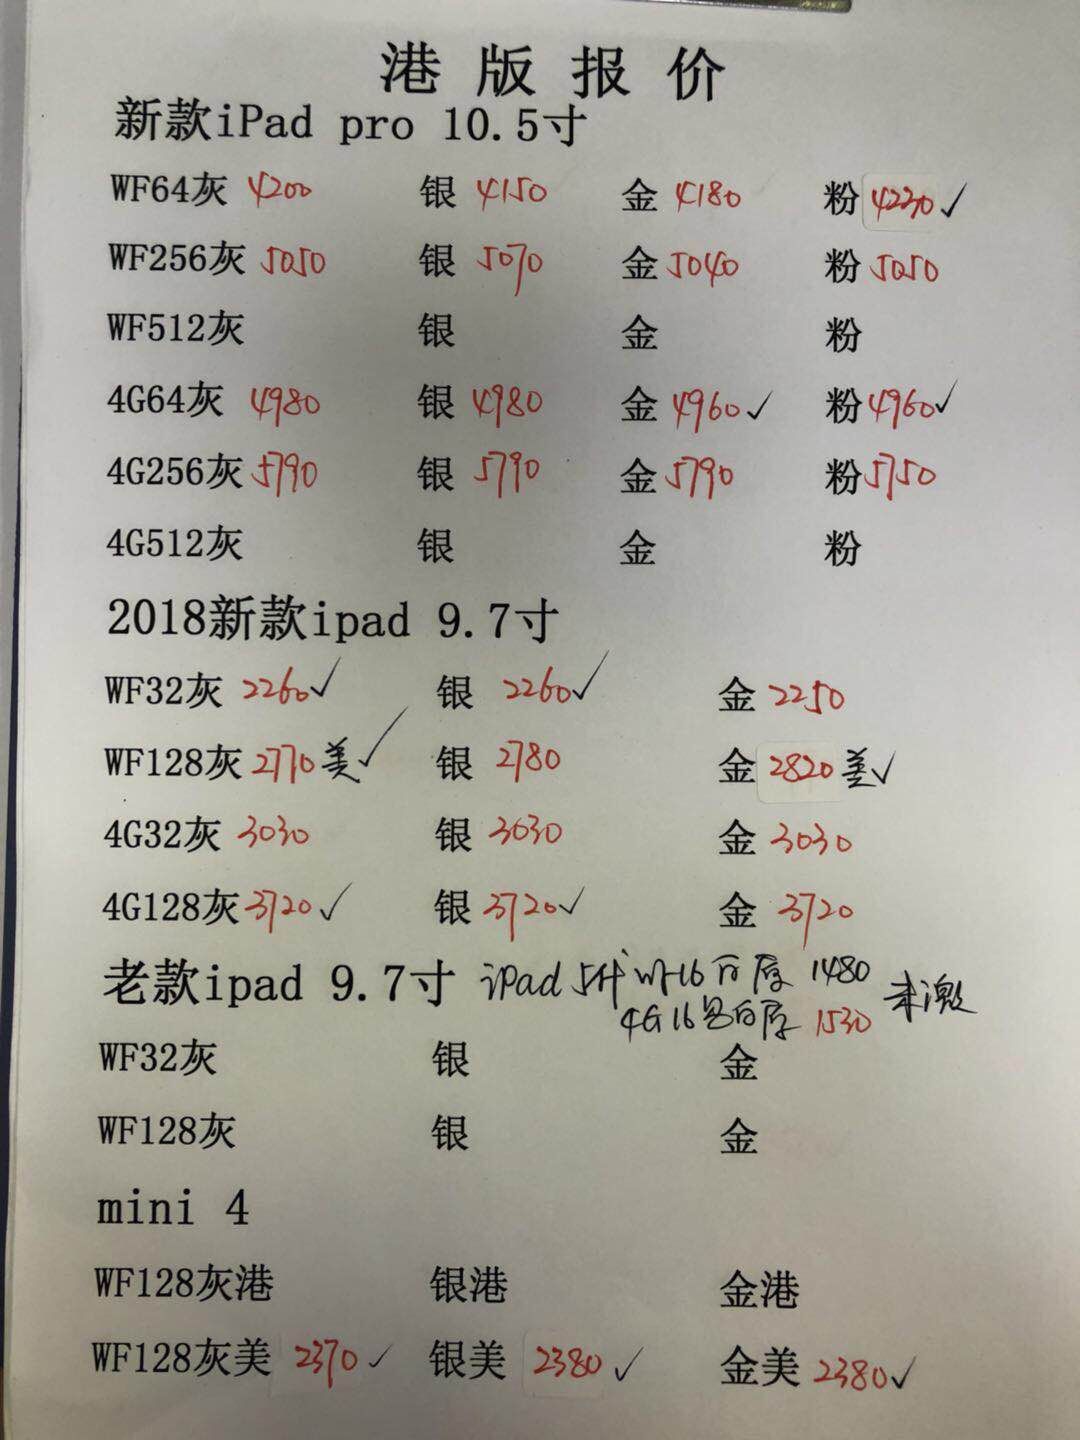 港版报价
新款iPad pro 10.5寸
WF64灰 4200 银 4150 金 4180 粉 4230 ✓
WF256灰 5050 银 5070 金 5040 粉 5050
WF512灰 银 金 粉
4G64灰 4980 银 4980 金 4960 ✓ 粉 4960 ✓
4G256灰 5790 银 5790 金 5790 粉 5750
4G512灰 银 金 粉
2018新款ipad 9.7寸
WF32灰 2260 ✓ 银 2260 ✓ 金 2250
WF128灰 2770 美 ✓ 银 2780 金 2820 美 ✓
4G32灰 3030 银 3030 金 3030
4G128灰 3720 ✓ 银 3720 ✓ 金 3720
老款ipad 9.7寸 iPad 5代 WF16 1480 未激
4G 16 1530
WF32灰 银 金
WF128灰 银 金
mini 4
WF128灰港 银港 金港
WF128灰美 2370 ✓ 银美 2380 ✓ 金美 2380 ✓